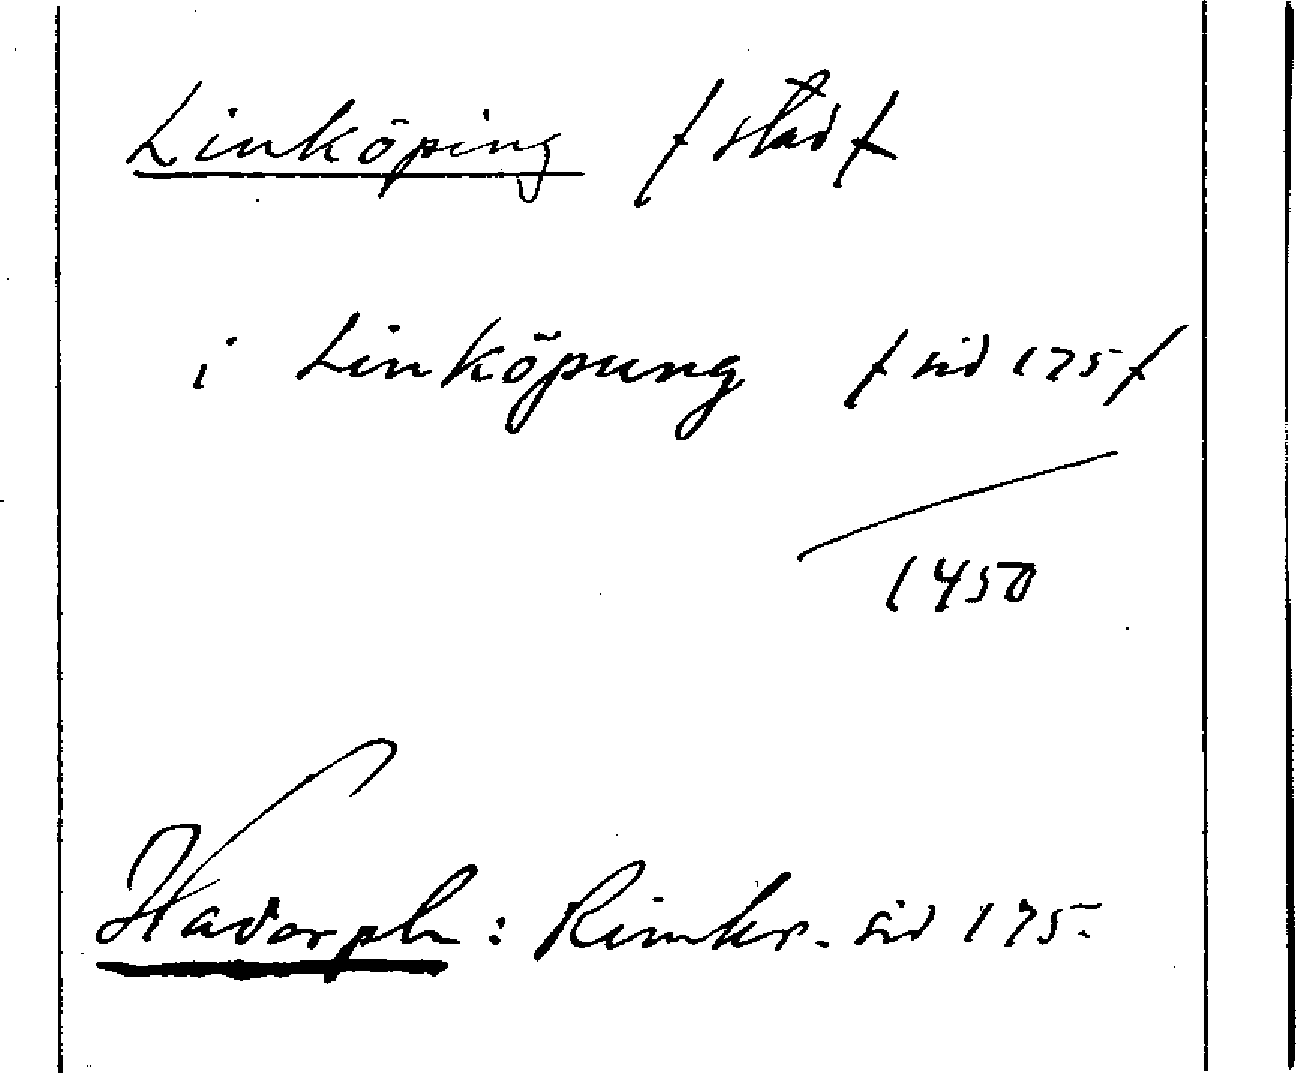 Linköping / stad /
i Linköpung / sid 175 /
1450
Hadorph: Rimkr. sid 175.